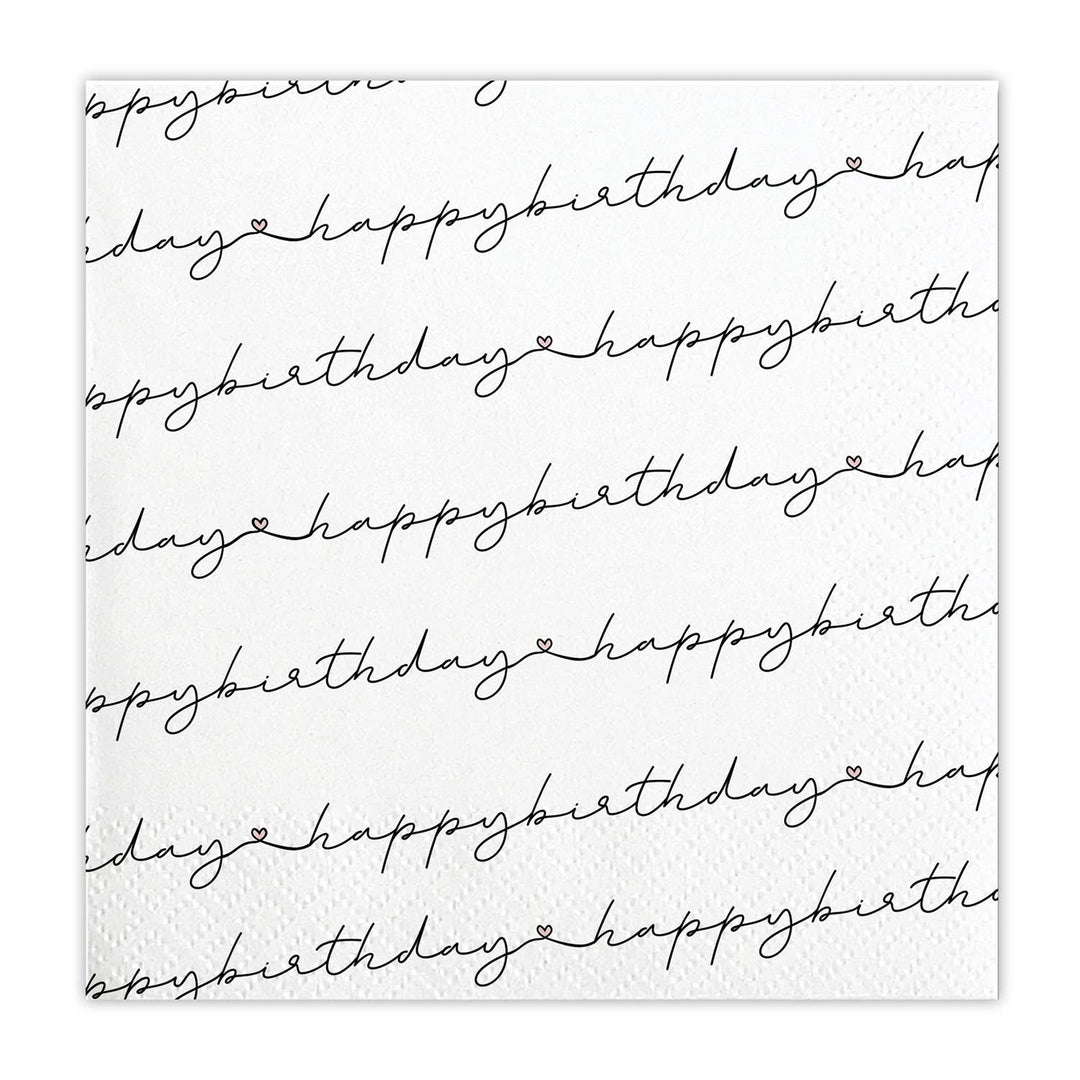 ppybirthday
day happybirthday hap
ppybirthday happybirthd
day happybirthday hap
ppybirthday happybirthd
day happybirthday hap
ppybirthday happybirthd